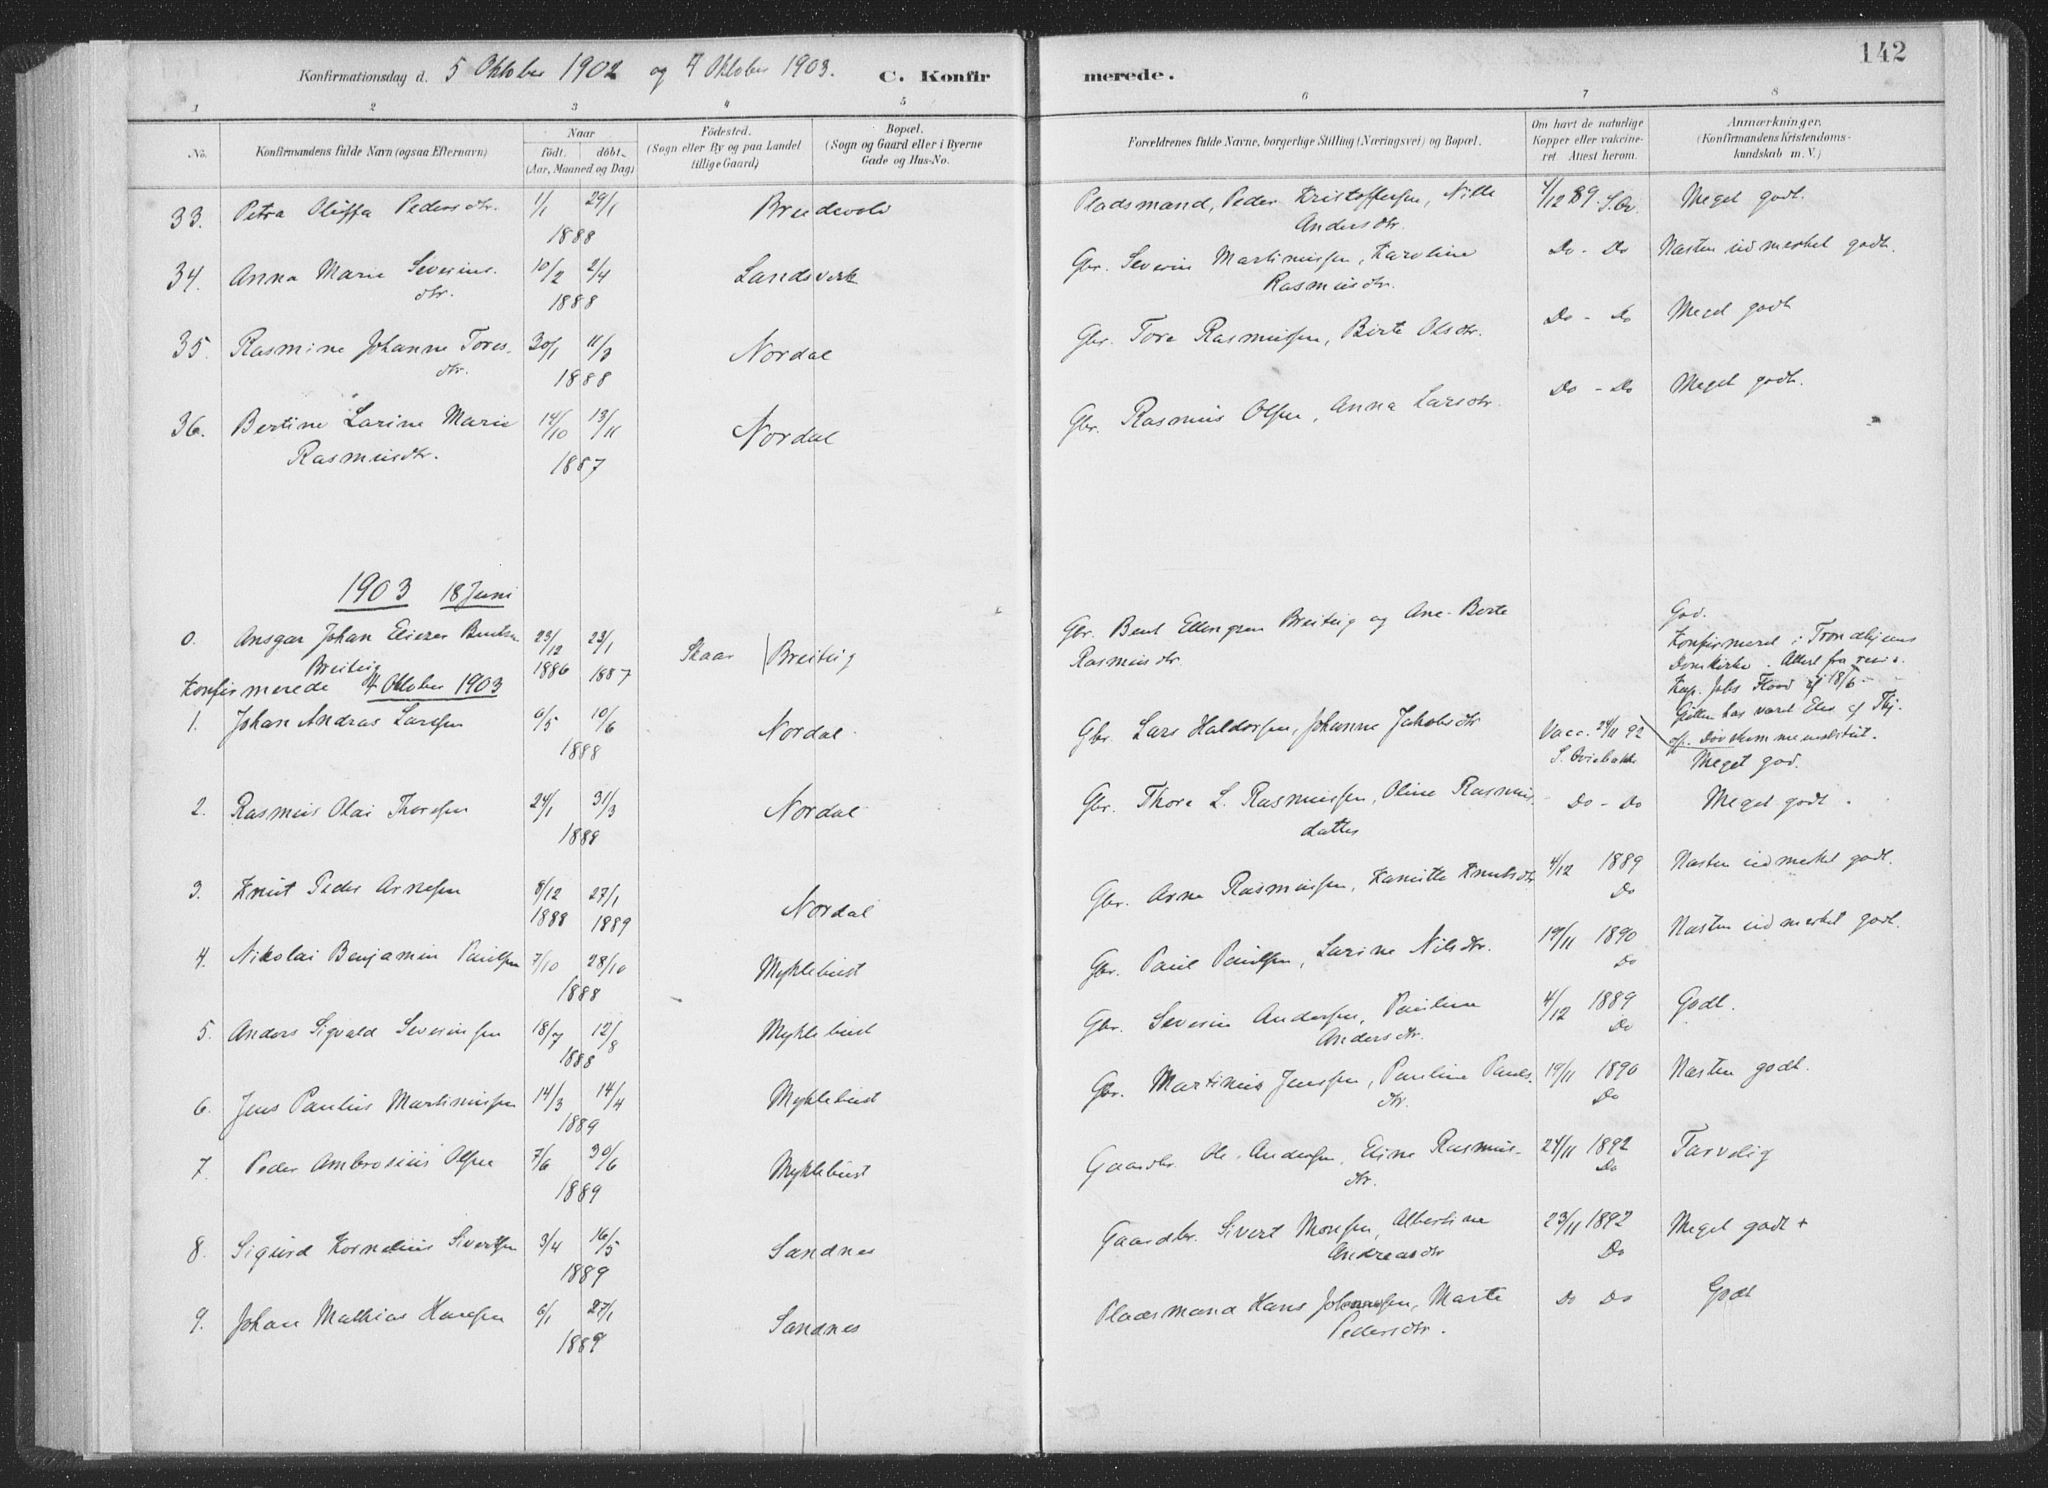 142
Konfirmationsdag d. 5 Oktober 1902 og 4 Oktober 1903. C. Konfirmerede.
1 2 3 4 5 6 7 8
No. Konfirmandens fulde Navn (ogsaa Efternavn) Naar födt. döbt. (Aar, Maaned og Dag) Födested. (Sogn eller By og paa Landet tillige Gaard) Bopæl. (Sogn og Gaard eller i Byerne Gade og Hus-No. Forældrenes fulde Navne, borgerlige Stilling (Næringsvei) og Bopæl. Om havt de naturlige Kopper eller vakcineret Attest herom. Anmærkninger. (Konfirmandens Kristendomskundskab m. V.)
33. Petra Oliffa Pedersdtr. 1/1 29/1 Breidevold Pladsmand, Peder Kristoffersen, Nille 4/12 89. S.Ør. Meget godt.
1888 Andersdtr.
34. Anna Marie Severins- 10/2 2/4 Landsverk Gbr. Severin Martinussen, Karoline Do - Do Næsten udmerket godt.
dtr. 1888 Rasmusdtr.
35. Rasmine Johanne Tores- 30/1 11/3 Nordal Gbr. Tore Rasmussen, Birte Olsdtr. Do - Do Meget godt
dtr. 1888
36. Bertine Larine Marie 14/10 13/11 Nordal Gbr. Rasmus Olsen, Anna Larsdtr. Do - Do Meget godt.
Rasmusdtr. 1887
1903 18 Juni
0. Ansgar Johan Eliezer Bentsen 23/12 23/1 Skaar Breiteig Gbr. Bent Ellingsen Breiteig og Ane-Berte God.
Breiteig 1886 1887 Rasmusdtr. Konfirmeret i Trondhjems
Domkirke. Attest fra resid.
Kap. Johs Flood af 18/6
Gutten har været Elev af Thj.
off. Døvstummeinstitut.
Konfirmerede 4 Oktober 1903
1. Johan Andras Larssen 6/5 10/6 Nordal Gbr. Lars Haldorsen, Johanne Jakobsdtr Vacc. 24/11 92 Meget god.
1888 S. Øviebakke
2. Rasmus Olai Thoresen 24/1 31/3 Nordal Gbr. Thore L. Rasmussen, Oline Rasmus- Do - Do Meget godt.
1889 datter
3. Knut Peder Arnesen 8/12 27/1 Nordal Gbr. Arne Rasmussen, Kanutte Knutsdtr 4/12 1889 Næsten udmerket godt.
1888 1889 Do
4. Nikolai Benjamin Paulsen 7/10 28/10 Myklebust Gbr. Paul Paulsen, Larine Nilsdtr. 19/11 1890 Næsten udmerket godt.
1888 Do
5. Anders Sigvald Severinsen 18/7 12/8 Myklebust Gbr. Severin Andersen, Pauline 4/12 1889 Godt.
1888 Andersdtr. Do
6. Jens Paulus Martinussen 14/3 14/4 Myklebust Gbr. Martinus Jenssen, Pauline Pauls- 19/11 1890 Næsten godt.
1889 dtr. Do
7. Peder Ambrosius Olsen 7/6 30/6 Myklebust Gaardbr. Ole Andersen, Eline Rasmus- 24/11 1892 Tarvelig
1889 dtr. Do
8. Sigurd Kornelius Sivertsen 3/4 16/5 Sandnes Gaardbr. Sivert Monsen, Albertine 23/11 1892 Meget godt +
1889 Andreasdtr Do
9. Johan Mathias Hansen 6/1 27/1 Sandnes Pladsmand Hans Johannessen, Marte Do Do Godt
1889 Pedersdtr.